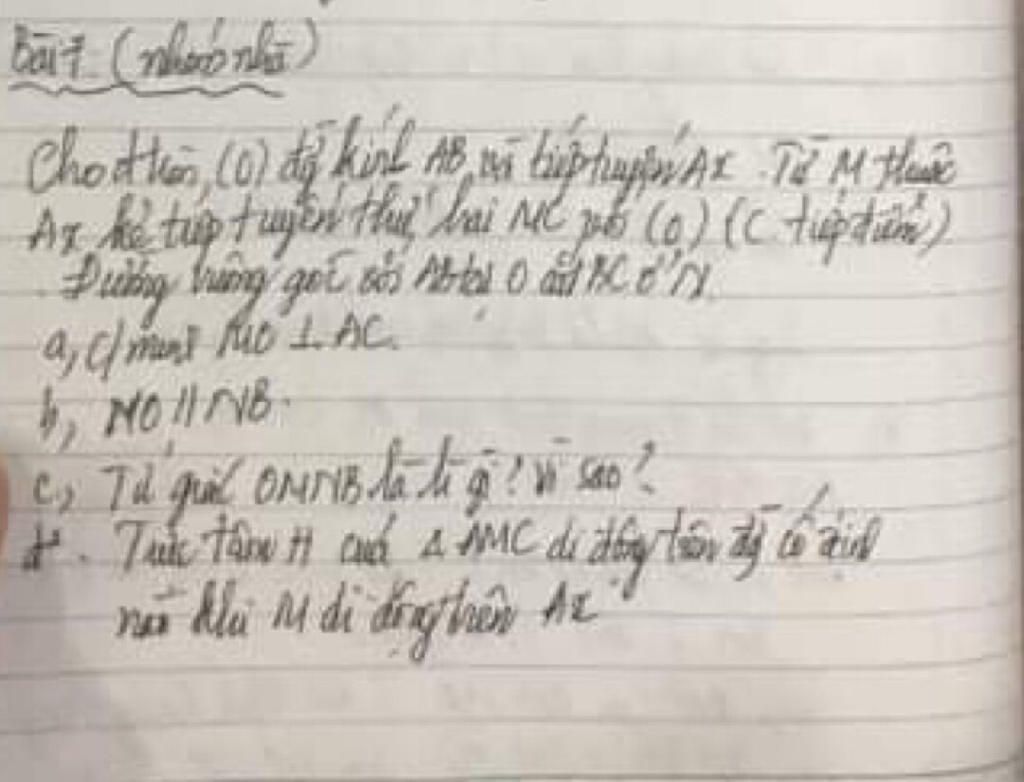 Bài 7 (nhóm nhà)
Cho đtròn, (O) đg kính AB, vẽ tiếp tuyến Ax. Từ M thuộc
Ax kẻ tiếp tuyến thứ hai MC với (O) (C tiếp điểm)
. Đường vuông góc với AB tại O cắt BC ở N.
a, C/minh MO ⊥ AC.
b, MO // NB.
c, Tứ giác OMNB là h gì? Vì sao?
d. Trực tâm H của Δ AMC di động trên đg cố định
nào khi M di động trên Ax